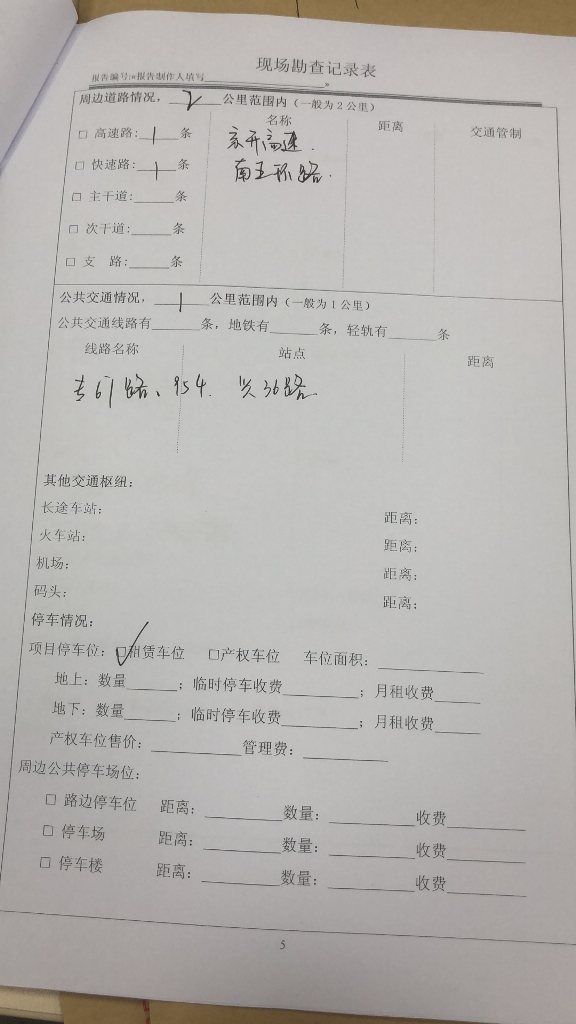 现场勘查记录表
报告编号:*报告制作人填写____________。
周边道路情况，__2__公里范围内（一般为2公里）
名称 距离 交通管制
□ 高速路:__1__条 京开高速.
□ 快速路:__1__条 南五环路.
□ 主干道:_____条
□ 次干道:_____条
□ 支 路:_____条
公共交通情况，__1__公里范围内（一般为1公里）
公共交通线路有______条，地铁有______条，轻轨有______条
线路名称 站点 距离
专61路、954. 兴36路.
其他交通枢纽:
长途车站: 距离:
火车站: 距离:
机场: 距离:
码头: 距离:
停车情况:
项目停车位: ☑租赁车位 □产权车位 车位面积:__________
地上: 数量______; 临时停车收费________; 月租收费_____
地下: 数量______; 临时停车收费________; 月租收费_____
产权车位售价:__________管理费:_________
周边公共停车场位:
□ 路边停车位 距离:________数量:_________收费________
□ 停车场 距离:________数量:_________收费________
□ 停车楼 距离:________数量:_________收费________
5